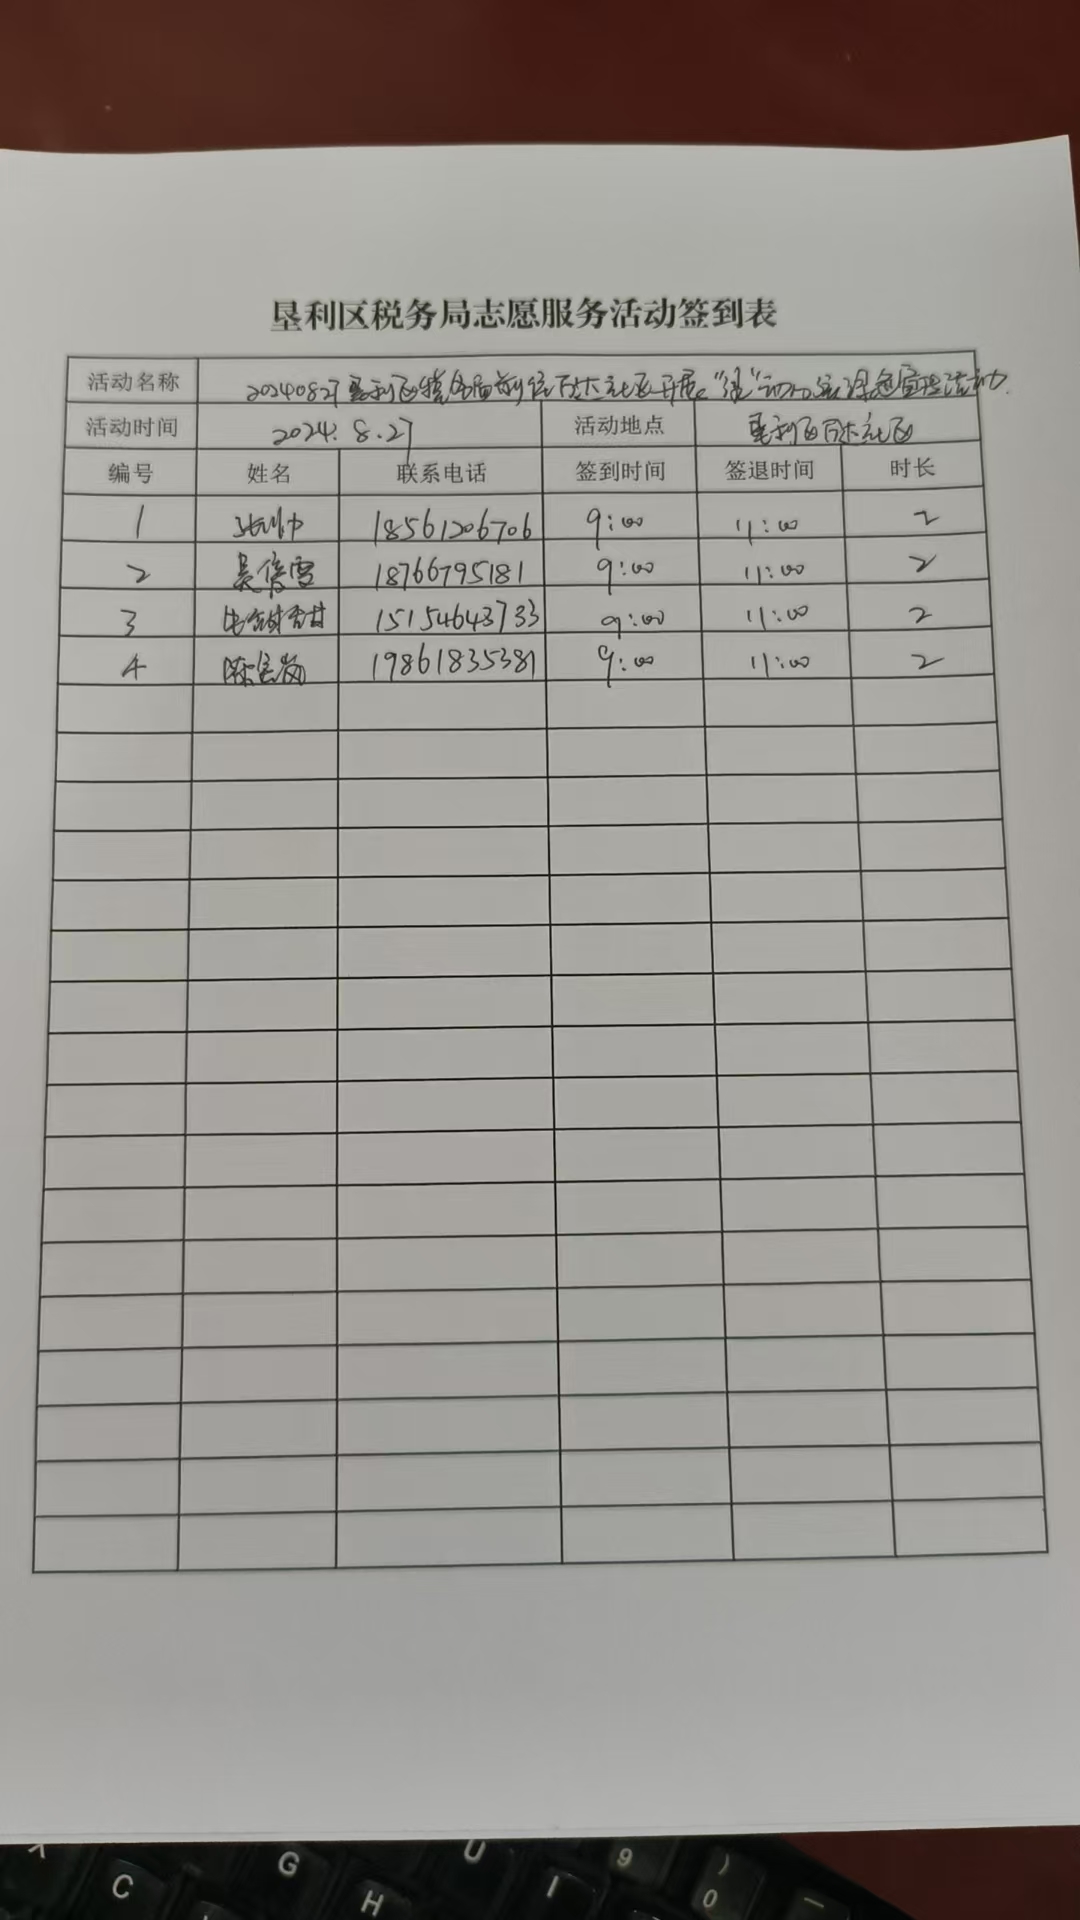 垦利区税务局志愿服务活动签到表
活动名称 20240827垦利区税务局前往万达社区开展“绿”动
活动时间 2024.8.27 活动地点 垦利区万达社区
编号 姓名 联系电话 签到时间 签退时间 时长
1 18561206706 9:00 11:00 2
2 吴倩雪 18766795181 9:00 11:00 2
3 15154643733 9:00 11:00 2
4 陈 19861835381 9:00 11:00 2
C G H U I 9 ) 0